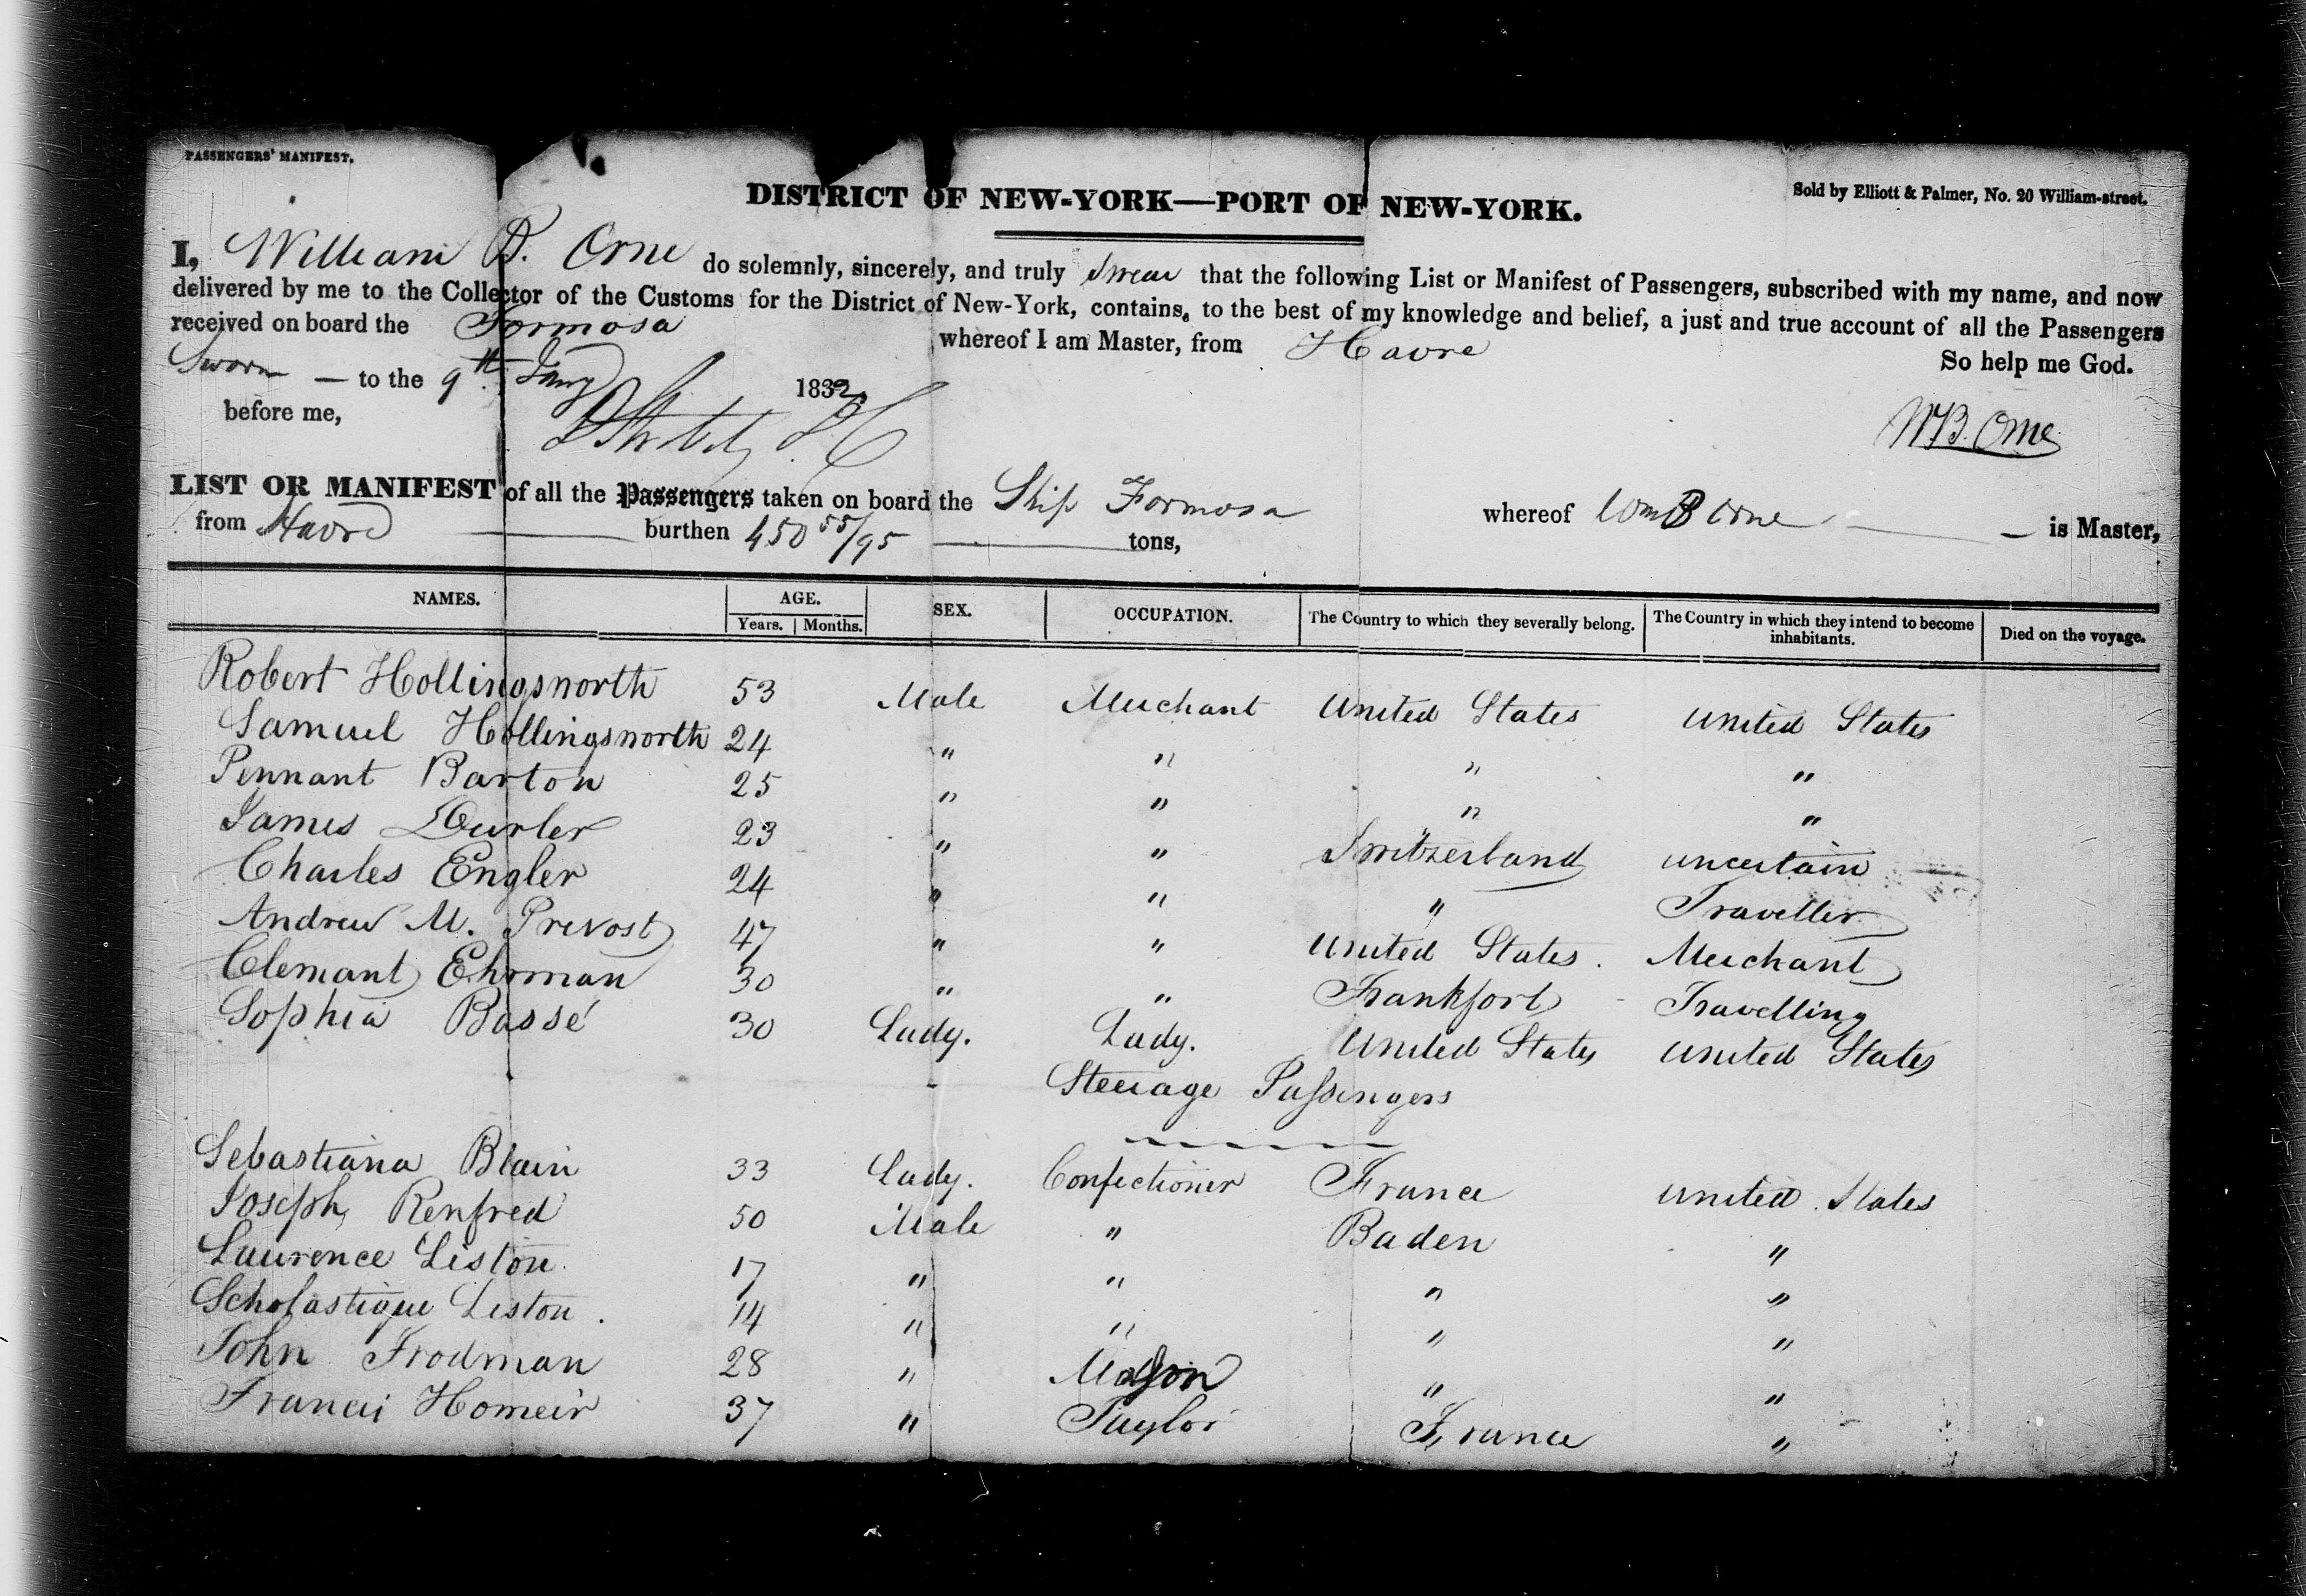 PASSENGERS' MANIFEST.
Sold by Elliott & Palmer, No. 20 William-street.
DISTRICT OF NEW-YORK—PORT OF NEW-YORK.
I, William B. Orne do solemnly, sincerely, and truly swear that the following List or Manifest of Passengers, subscribed with my name, and now
delivered by me to the Collector of the Customs for the District of New-York, contains, to the best of my knowledge and belief, a just and true account of all the Passengers
received on board the Formosa whereof I am Master, from Havre
So help me God.
Sworn — to the 9th Jany 1832
before me,
WB. Orne
LIST OR MANIFEST of all the Passengers taken on board the Ship Formosa whereof Wm B Orne — is Master,
from Havre burthen 450 55/95 tons,
NAMES. AGE. SEX. OCCUPATION. The Country to which they severally belong. The Country in which they intend to become inhabitants. Died on the voyage.
Years. Months.
Robert Hollingsworth 53 Male Merchant United States United States
Samuel Hollingsworth 24 " " " "
Pennant Barton 25 " " " "
James Durler 23 " " Switzerland uncertain
Charles Engler 24 " " " Traveller
Andrew M. Prevost 47 " " United States. Merchant
Clemant Ehrman 30 " " Frankfort Travelling
Sophia Bassé 30 Lady. Lady. United States United States
Steerage Passengers
Sebastiana Blain 33 Lady. Confectioner France United States
Joseph Renfred 50 Male " Baden "
Laurence Liston 17 " " " "
Scholastique Liston. 14 " " " "
John Frodman 28 " Mason " "
Francis Homeir 37 " Taylor France "